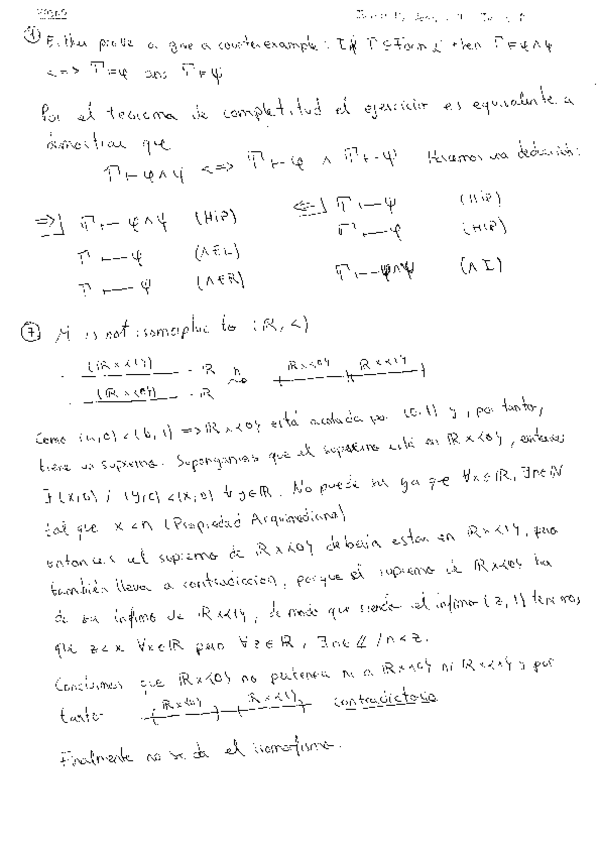 ① Either prove or give a counterexample: If Γ ⊆ Form_L then Γ ⊨ φ∧ψ
<=> Γ ⊨ φ and Γ ⊨ ψ
Por el teorema de completitud el ejercicio es equivalente a
demostrar que
Γ ⊢ φ∧ψ <=> Γ ⊢ φ ∧ Γ ⊢ ψ Hacemos una deducción:
=>] Γ ⊢ φ∧ψ (HIP) <=] Γ ⊢ ψ (HIP)
Γ ⊢ φ (∧EL) Γ ⊢ φ (HIP)
Γ ⊢ ψ (∧ER) Γ ⊢ φ∧ψ (∧I)
⑦ M is not isomorphic to (ℝ, <)
(ℝ×{1}) ℝ ℝ×{0} ℝ×{1}
(ℝ×{0}) ℝ
Como (a,0) < (b,1) => ℝ×{0} está acotada por (0,1) y, por tanto,
tiene un supremo. Supongamos que el supremo está en ℝ×{0}, entonces
∃ (x,0) / (y,0) < (x,0) ∀y∈ℝ. No puede ser ya que ∀x∈ℝ, ∃n∈ℕ
tal que x < n (Propiedad Arquimediana)
entonces el supremo de ℝ×{0} debería estar en ℝ×{1}, pero
también lleva a contradicción, porque el supremo de ℝ×{0} ha
de ser ínfimo de ℝ×{1}, de modo que siendo el ínfimo (z,1) tenemos
que z<x ∀x∈ℝ pero ∀z∈ℝ, ∃n∈ℤ / n<z.
Concluimos que ℝ×{0} no pertenece ni a ℝ×{0} ni ℝ×{1} y por
tanto ℝ×{0} ℝ×{1} contradictorio
Finalmente no se da el isomorfismo.